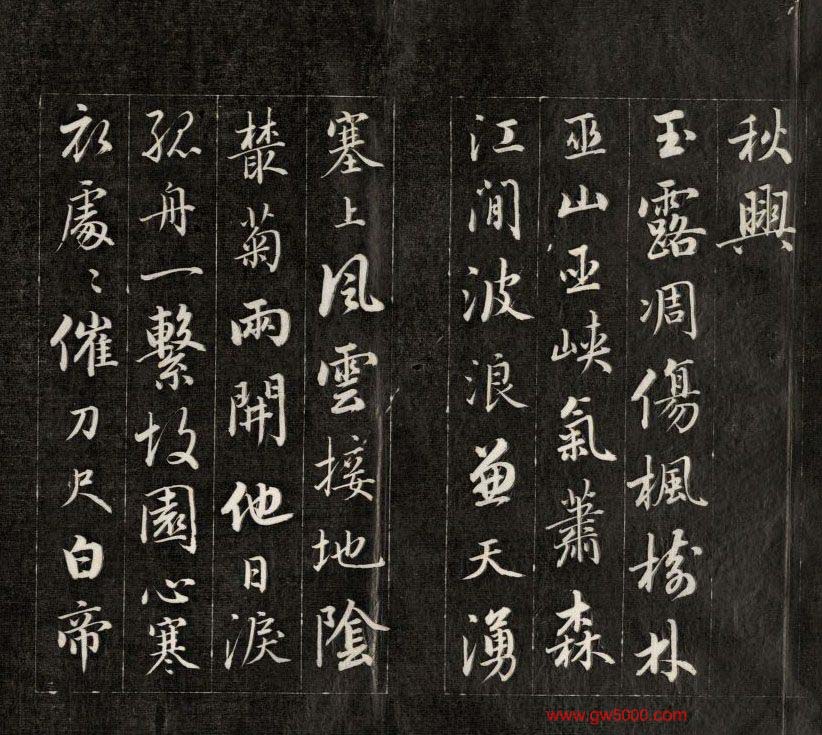 秋興
玉露凋傷楓樹林
巫山巫峽氣蕭森
江間波浪兼天湧
塞上風雲接地陰
叢菊兩開他日淚
孤舟一繫故園心寒
衣處〻催刀尺白帝
www.gw5000.com